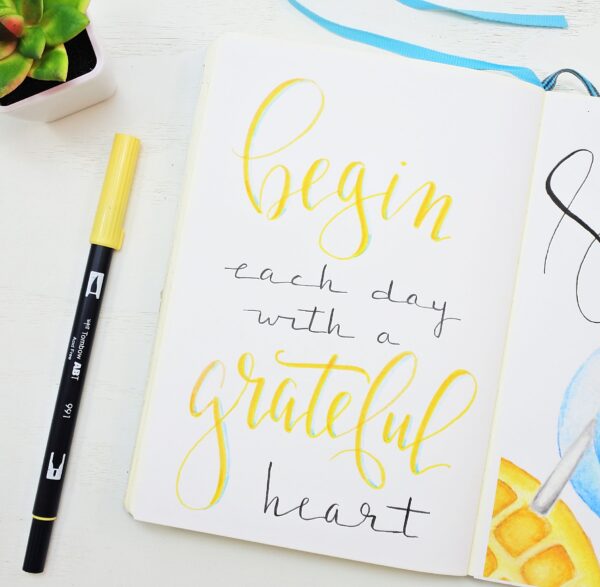 begin
each day
with a
grateful
heart
Tombow ABT
Acid Free
991